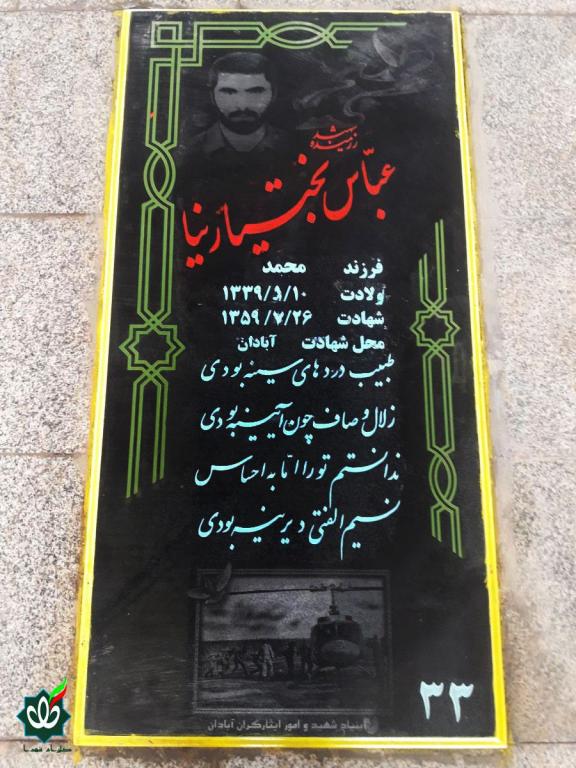 شهید
رزمنده
عباس بختیار نیا
فرزند محمد
ولادت ۱۳۳۹/۵/۱۰
شهادت ۱۳۵۹/۷/۲۶
محل شهادت آبادان
طبیب دردهای سینه بودی
زلال و صاف چون آیینه بودی
ندانستم تو را امّا به احساس
نسیم الفتی دیرینه بودی
۳۳
بنیاد شهید و امور ایثارگران آبادان